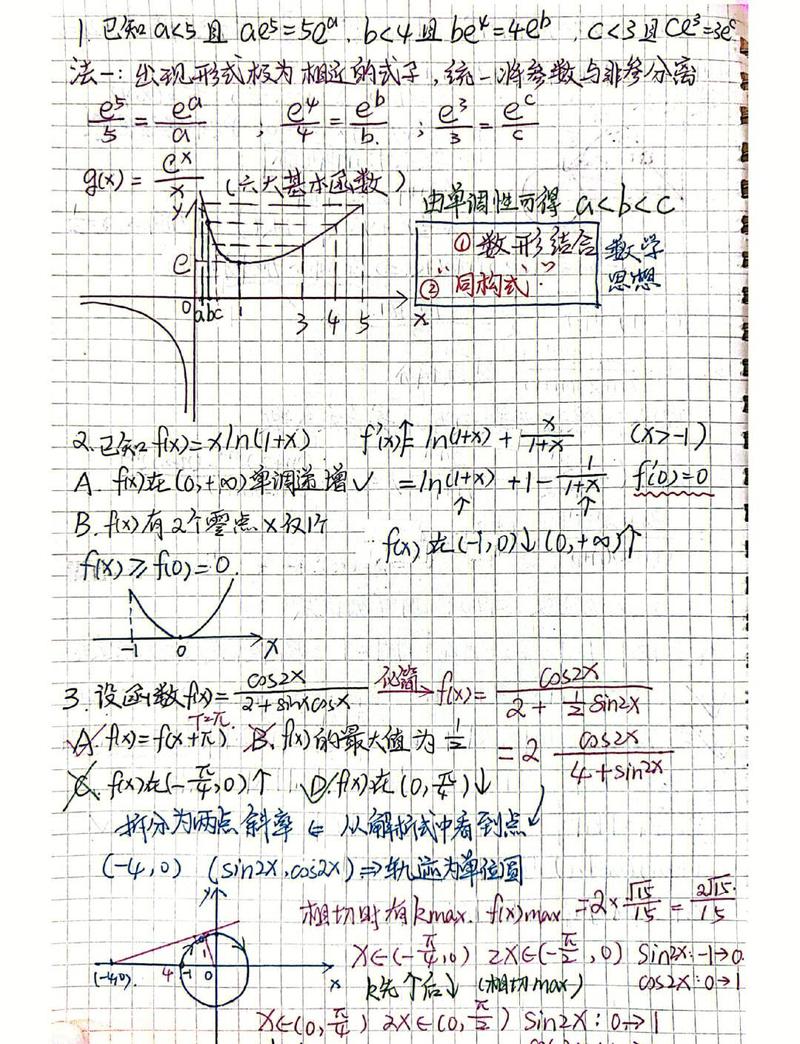 1. 已知 a<5 且 ae⁵=5eᵃ, b<4 且 be⁴=4eᵇ, c<3 且 ce³=3eᶜ
法一: 出现形式极为相近的式子, 统一将参数与非参分离
e⁵/5 = eᵃ/a ; e⁴/4 = eᵇ/b ; e³/3 = eᶜ/c
g(x) = eˣ/x (六大基本函数)
由单调性可得 a<b<c
① 数形结合
② "同构式"
数学思想
y
e
0 a b c 1 3 4 5 x
2. 已知 f(x)=xln(1+x) f'(x)= ln(1+x) + x/(1+x) (x>-1)
A. f(x)在(0,+∞)单调递增 ✓ =ln(1+x) +1- 1/(1+x) f'(0)=0
↑ ↑
B. f(x)有2个零点 × 仅1个
f(x) 在(-1,0)↓ (0,+∞)↑
f(x) ≥ f(0) = 0.
-1 0 x
3. 设函数f(x)= cos2x/(2+sinxcosx) 化简→ f(x)= cos2x/(2+½sin2x)
T=π
A. f(x)=f(x+π) B. f(x)的最大值为½ =2 cos2x/(4+sin2x)
C. f(x)在(-π/4,0)↑ D. f(x)在(0,π/4)↓
拆分为两点斜率 ← 从解析式中看到点
(-4,0) (sin2x,cos2x)⇒轨迹为单位圆
y
相切时有kmax. f(x)max =2×√15/15 = 2√15/15
(-4,0) 4 -1 0 1 x
x∈(-π/4,0) 2x∈(-π/2,0) sin2x:-1→0
k先↑后↓ (相切max) cos2x:0→1
x∈(0,π/4) 2x∈(0,π/2) sin2x:0→1